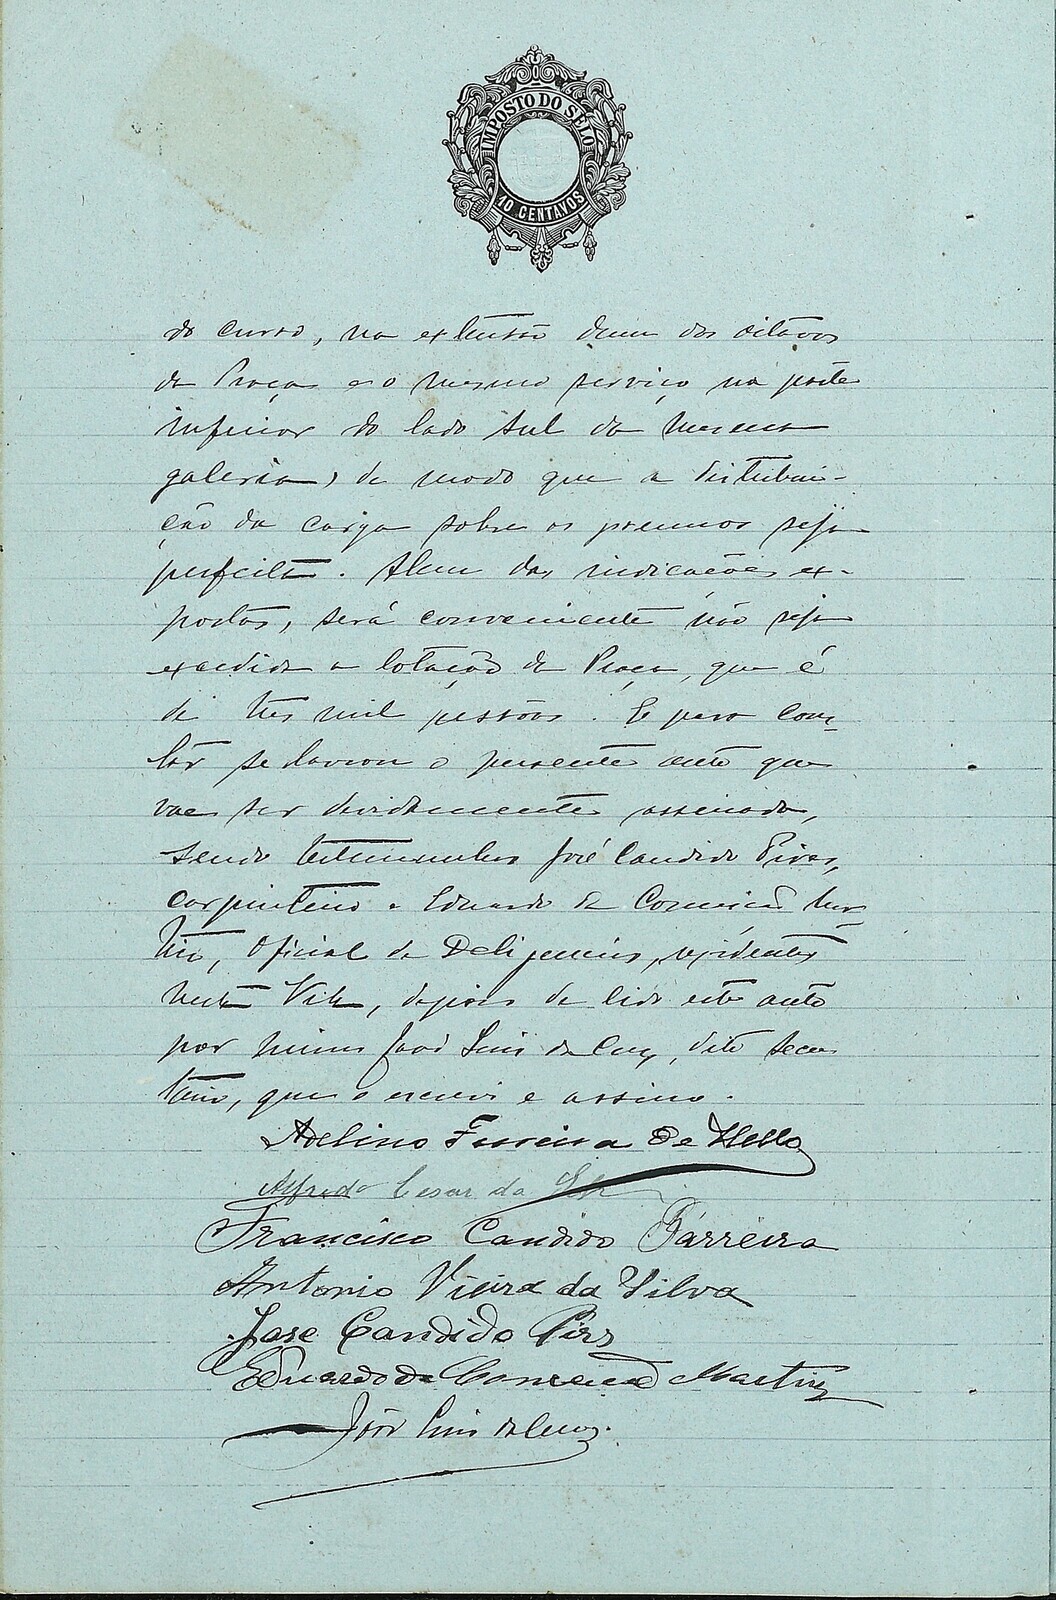 IMPOSTO DO SELO
10 CENTAVOS
do curro, na extensão dum dos oitavos
da Praça e o mesmo serviço na parte
inferior do lado sul da mesma
galeria, de modo que a distribui-
ção da carga sobre os prumos seja
perfeita. Alem das indicações ex-
postas, será conveniente não seja
excedida a lotação da Praça, que é
de tres mil pessôas. E para cons-
tár se lavrou o presente auto que
vae ser devidamente assinado,
sendo testemunhas José Candido Pires,
carpinteiro e Eduardo da Conceição Mar-
tins, Oficial de Deligencias, residentes
nesta Vila, depois de lido este auto
por mim José Luis da Cruz, dito secre-
tario, que o escrevi e assino.
Adelino Ferreira de Mello
Alfredo Cesar da
Francisco Candido Barreira
Antonio Vieira da Silva
Jose Candido Pires
Eduardo da Conceição Martins
José Luis da Cruz.